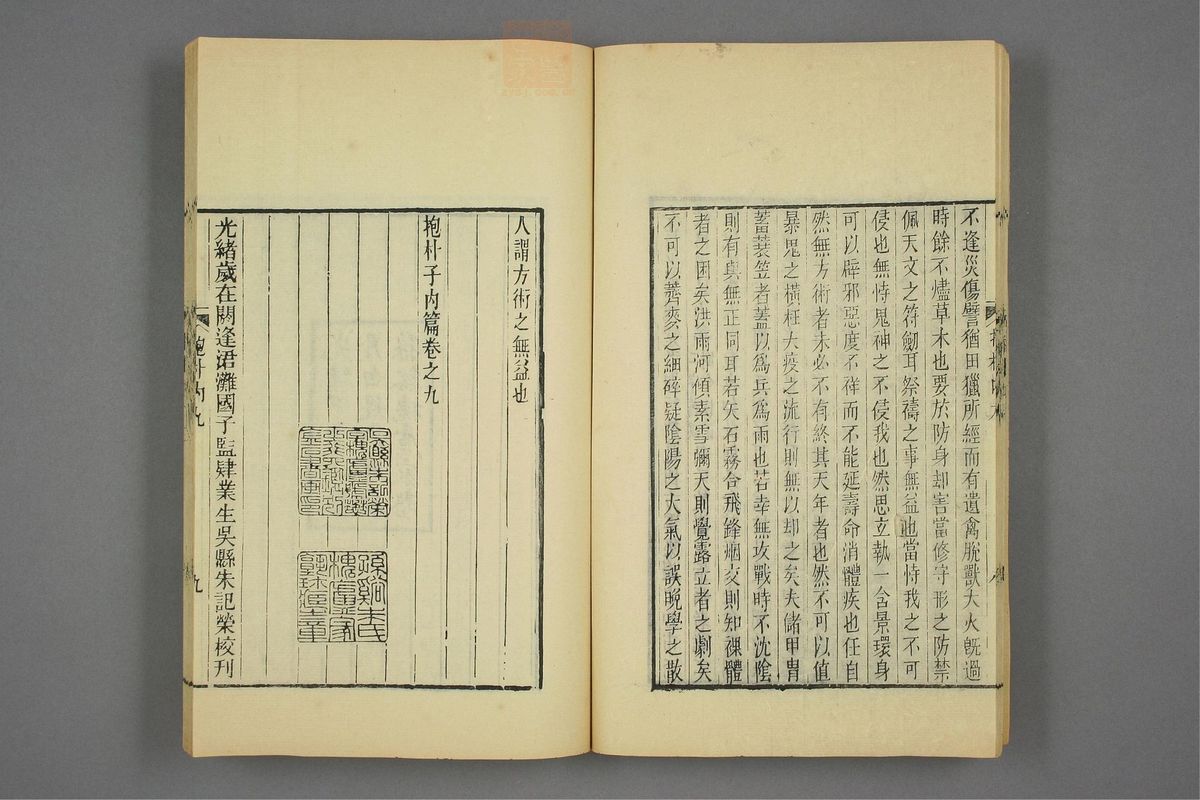 不逢災傷譬猶田獵所經而有遺禽脫獸大火旣過
時餘不燼草木也要於防身却害當修守形之防禁
佩天文之符劒耳祭禱之事無益也當恃我之不可
侵也無恃鬼神之不侵我也然思立執一含景環身
可以辟邪惡度不祥而不能延壽命消體疾也任自
然無方術者未必不有終其天年者也然不可以值
暴鬼之橫枉大疫之流行則無以却之矣夫儲甲冑
蓄蓑笠者蓋以爲兵爲雨也若幸無攻戰時不沈陰
則有與無正同耳若矢石霧合飛鋒烟交則知裸體
者之困矣洪雨河傾素雪彌天則覺露立者之劇矣
不可以薺麥之細碎疑陰陽之大氣以誤晚學之散
人謂方術之無益也
抱朴子內篇卷之九
吳縣朱記榮
槐廬
孫谿朱氏
槐廬家
光緒歲在閼逢涒灘國子監肄業生吳縣朱記榮校刊
抱朴內九
九